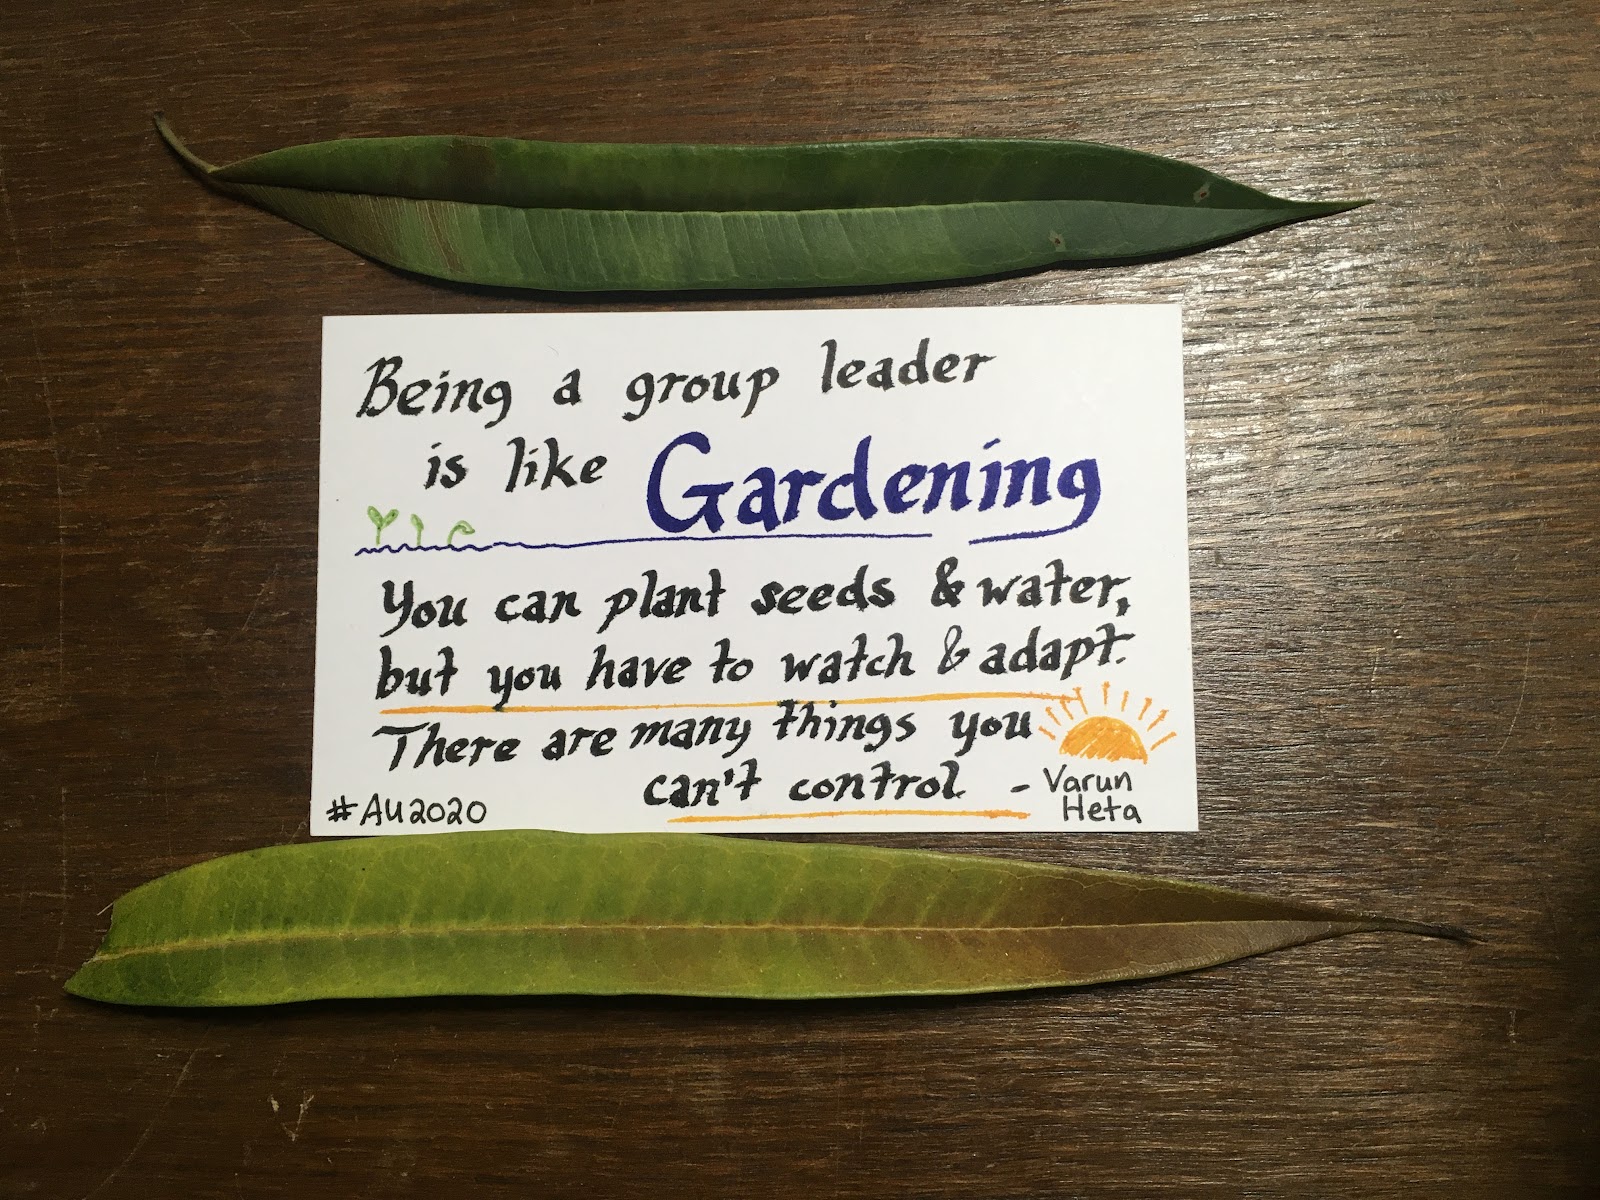 Being a group leader
is like Gardening
You can plant seeds & water,
but you have to watch & adapt.
There are many things you
can't control - Varun
Heta
#AU2020